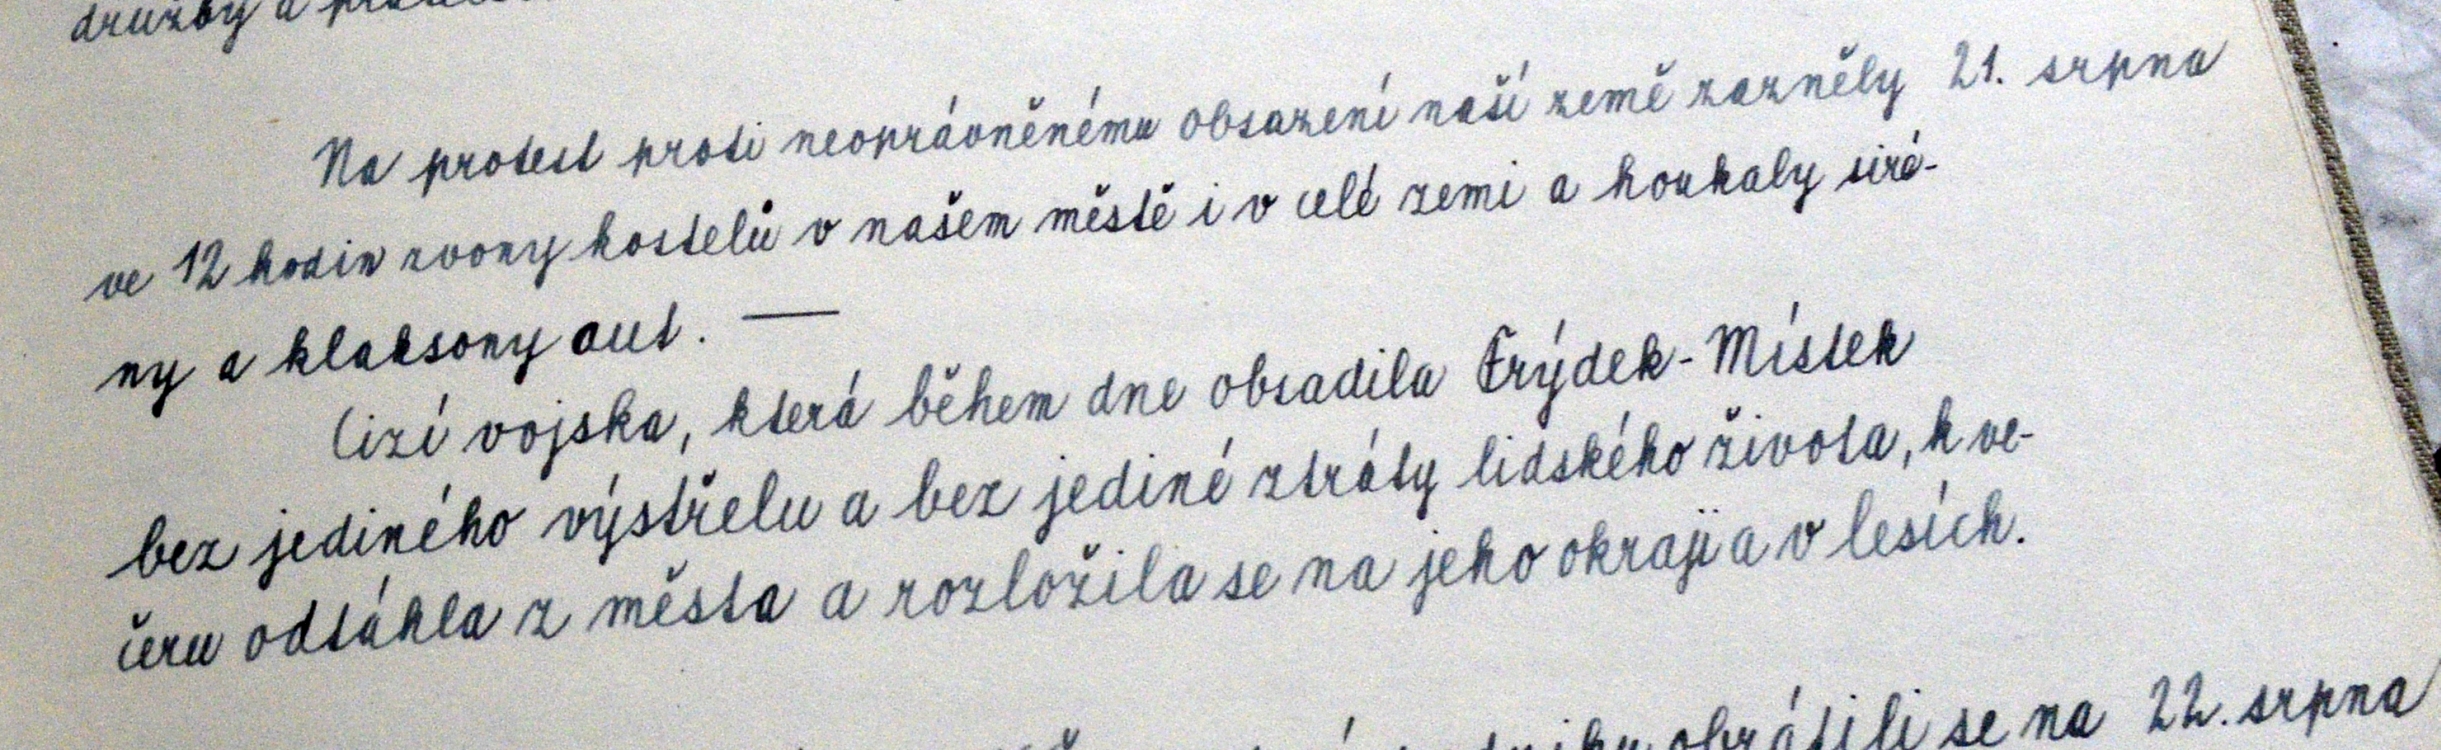 družby a
Na protest proti neoprávněnému obsazení naší země zazněly 21. srpna
ve 12 hodin zvony kostelů v našem městě i v celé zemi a houkaly siré-
ny a klaksony aut. —
Cizí vojska, která během dne obsadila Frýdek-Místek
bez jediného výstřelu a bez jediné ztráty lidského života, k ve-
čeru odtáhla z města a rozložila se na jeho okraji a v lesích.
obrátili se na 22. srpna